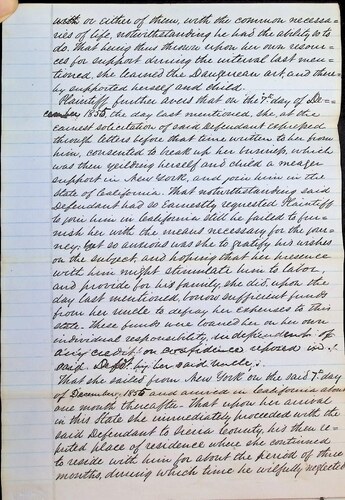 with or either of them, with the common necessa-
ries of life, notwithstanding he had the ability so to
do. That being thus thrown upon her own resour-
ces for support during the interval last men-
tioned, she learned the Daugerean art, and there-
by supported herself and child.
Plaintiff further avers that on the 7th day of De-
cember 1855, the day last mentioned, she, at the
earnest solicitation of said defendant expressed
through letters before that time written to her from
him, consented to break up her business, which
was then yeilding herself and child a meager
support in New York, and join him in the
state of California. That notwithstanding said
Defendant had so earnestly requested Plaintiff
to join him in California still he failed to fur-
nish her with the means necessary for the jour-
ney; but so anxious was she to gratify his wishes
on the subject, and hoping that her presence
with him might stimulate him to labor,
and provide for his family, she did, upon the
day last mentioned, borrow sufficient funds
from her uncle to defray her expenses to this
state. These funds were loaned her on her own
individual responsibility, independent of
any credit or confidence reposed in
said Deft. by her said uncle.
That she sailed from New York on the said 7th day
of December, 1855 and arrived in California about
one month thereafter. That upon her arrival
in this State she immediately proceeded with the
said Defendant to Sierra County, his then re-
puted place of residence where she continued
to reside with him for about the period of three
months, during which time he wilfully neglected